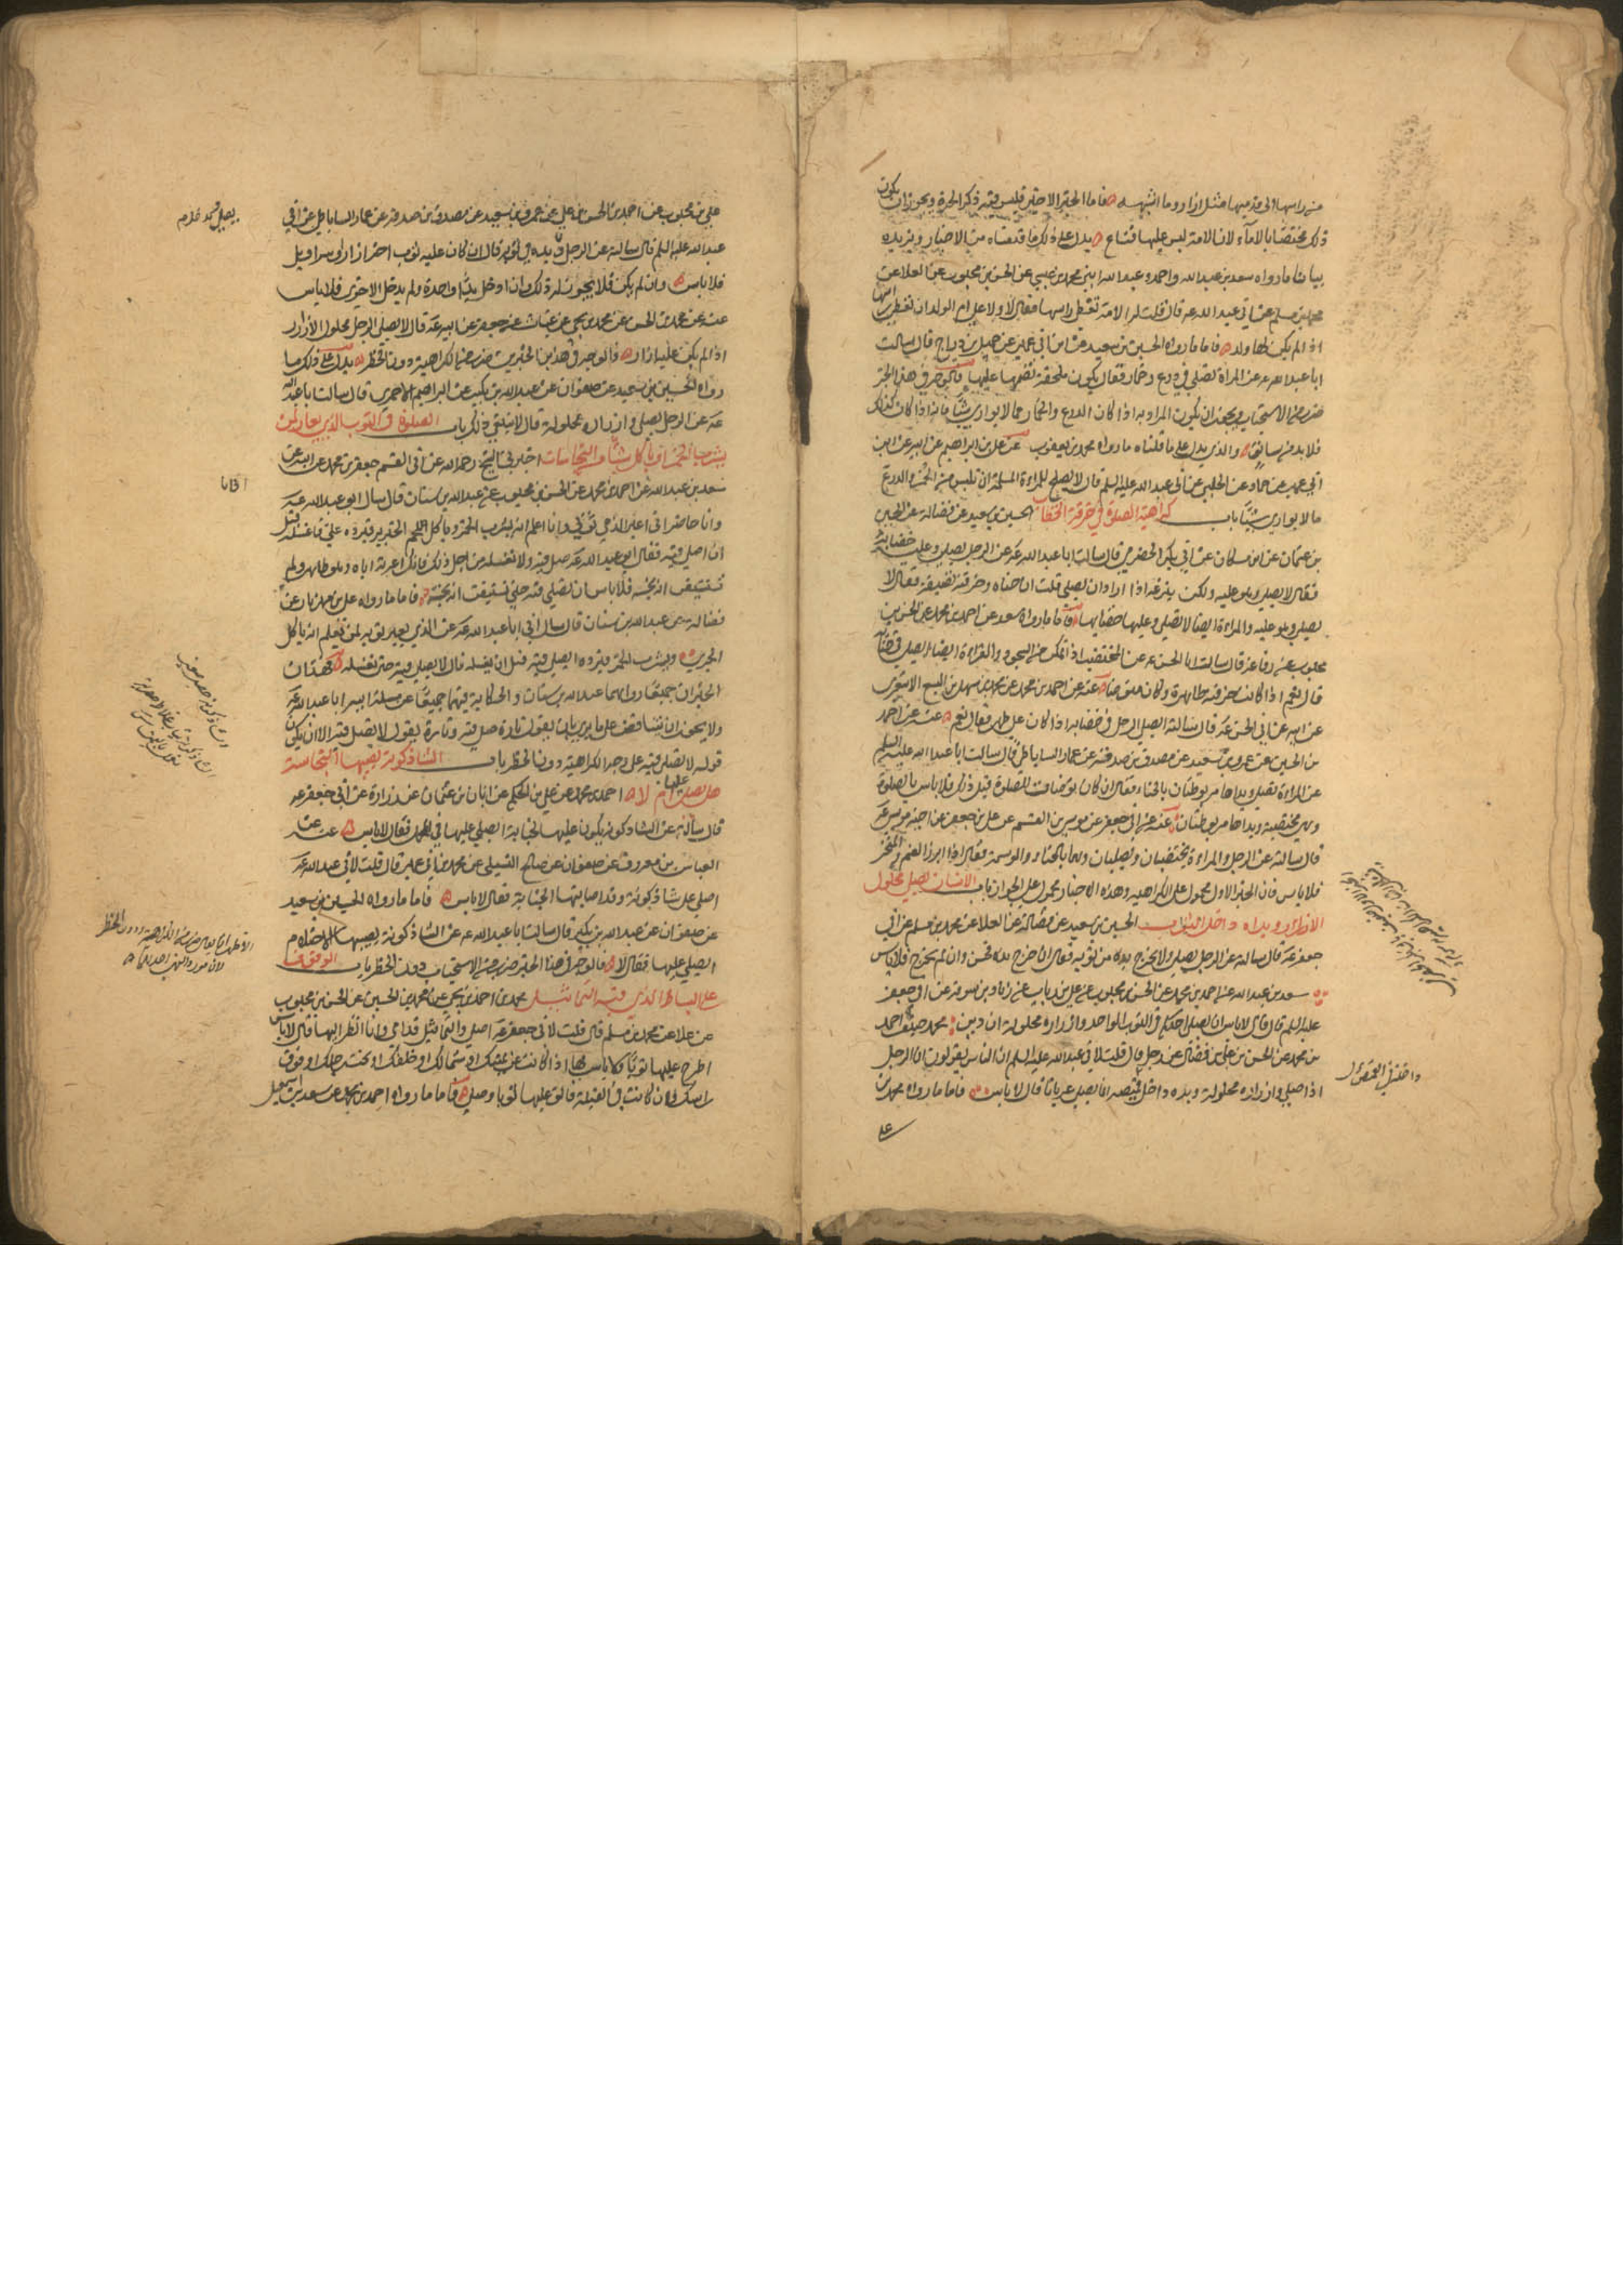 من راسها الى قدميها مثل ازار وما اشبهه فاما الخبر الاخير فليس فيه ذكر الحرة ويجوز ان يكون
ذلك مختصا بالاماء لان الامة ليس عليها قناع يدل على ذلك ما قدمناه من الاخبار ويزيده
بيانا ما رواه سعد بن عبد الله عن احمد وعبد الله ابني محمد بن عيسى عن الحسن بن محبوب عن العلا عن
محمد بن مسلم عن ابي عبد الله عه قال قلت له الامة تغطي راسها فقال لا ولا على ام الولد ان تغطي راسها
اذا لم يكن لها ولد فاما ما رواه الحسين بن سعيد عن ابن ابي عمير عن جميل بن دراج قال سالت
ابا عبد الله عه عن المراة تصلي في درع وخمار فقال يكون عليها ملحفة تضمها عليها فالوجه في هذا الخبر
ضرب من الاستحباب ويجوز ان يكون المراد به اذا كان الدرع والخمار مما لا يواري شيئا فانه اذا كان كذلك
فلا بد من ساتر والذي يدل على ما قلناه ما رواه محمد بن يعقوب عن علي بن ابراهيم عن ابيه عن ابن
ابي عمير عن حماد عن الحلبي عن ابي عبد الله عليه السلم قال لا يصلح للمراة المسلمة ان تلبس من الخمر والدرع
ما لا يواري شيئا باب كراهية الصلوة في خرقة الخضاب الحسين بن سعيد عن فضالة عن الحسين
بن عثمان عن ابن مسكان عن ابي بكر الحضرمي قال سالت ابا عبد الله عه عن الرجل يصلي وعليه خضابه
فقال لا يصلي وهو عليه ولكن ينزعه اذا اراد ان يصلي قلت ان حناه وخرقته نظيفة فقال لا
يصلي وهو عليه والمراة ايضا لا تصلي وعليها خضابها فاما ما رواه سعد عن احمد بن محمد عن الحسن بن
محبوب عن رفاعة قال سالت ابا الحسن عه عن المختضب اذا تمكن من السجود والقراءة ايضا ايصلي في حنائه
قال نعم اذا كانت خرقته طاهرة وكان متوضئا عنه عن احمد بن محمد عن محمد بن سهل بن اليسع الاشعري
عن ابيه عن ابي الحسن عه قال سالته ايصلي الرجل في خضابه اذا كان على طهر فقال نعم عنه عن احمد
بن الحسن عن عمرو بن سعيد عن مصدق بن صدقة عن عمار الساباطي قال سالت ابا عبد الله عليه السلم
عن المراة تصلي ويداها مربوطتان بالحناء فقال ان كان توضات للصلوة قبل ذلك فلا باس بالصلوة
وهي مختضبة ويداها مربوطتان عنه عن ابي جعفر عن موسى بن القسم عن علي بن جعفر عن اخيه موسى عه
قال سالته عن الرجل والمراة يختضبان ويصليان وهما بالحناء والوسمة فقال اذا ابرز الفم والمنخر
فلا باس فان الخبر الاول محمول على الكراهية وهذه الاخبار محمول على الجواز باب الانسان يصلي محلول
الازرار ويداه داخل الثياب الحسين بن سعيد عن فضالة عن العلا عن محمد بن مسلم عن ابي
جعفر عه قال سالته عن الرجل يصلي ولا يخرج يده من ثوبه فقال ان اخرج يده فحسن وان لم يخرج فلا باس
سعد بن عبد الله عن احمد بن محمد عن الحسن بن محبوب عن علي بن رياب عن زياد بن سوقة عن ابي جعفر
عليه السلم قال قال لا باس ان يصلي احدكم في الثوب الواحد وازراره محلولة ان دين محمد حنيف احمد
بن محمد عن الحسن بن علي بن فضال عن رجل قال قلت لابي عبد الله عليه السلم ان الناس يقولون ان الرجل
اذا صلى وازراره محلولة ويده داخل قميصه انما يصلي عريانا قال لا باس فاما ما رواه محمد بن
علي بن محبوب عن احمد بن الحسن بن علي عن عمرو بن سعيد عن مصدق بن صدقة عن عمار الساباطي عن ابي
عبد الله عليه السلم قال سالته عن الرجل يدخل يده في ثوبه قال ان كان عليه ثوب اخر ازار او سراويل
فلا باس وان لم يكن فلا يجوز له ذلك وان ادخل يدا واحدة ولم يدخل الاخرى فلا باس
عنه عن محمد بن الحسن عن محمد بن يحيى عن غياث عن جعفر عن ابيه عه قال لا يصلي الرجل محلول الازرار
اذا لم يكن عليه ازار فالوجه في هذين الخبرين ضرب من الكراهية دون الحظر يدل على ذلك ما
رواه الحسين بن سعيد عن صفوان عن عبد الله بن بكير عن ابراهيم الاحمري قال سالت ابا عبد الله
عه عن الرجل يصلي وازراره محلولة قال لا ينبغي ذلك باب الصلوة في الثوب الذي يعار لمن
يشرب الخمر او ياكل شيئا من النجاسات اخبرني الشيخ رحمه الله عن ابي القسم جعفر بن محمد عن ابيه عن
سعد بن عبد الله عن احمد بن محمد عن الحسن بن محبوب عن عبد الله بن سنان قال سال ابي ابو عبد الله عه
وانا حاضر اني اعير الذمي ثوبي وانا اعلم انه يشرب الخمر وياكل لحم الخنزير فيرده علي فاغسله قبل
ان اصلي فيه فقال ابو عبد الله عه صل فيه ولا تغسله من اجل ذلك فانك اعرته اياه وهو طاهر ولم
تستيقن انه نجسه فلا باس ان تصلي فيه حتى تستيقن انه نجسه فاما ما رواه علي بن مهزيار عن
فضالة عن عبد الله بن سنان قال سال ابي ابا عبد الله عه عن الذي يعير ثوبه لمن يعلم انه ياكل
الجري ويشرب الخمر فيرده ايصلي فيه قبل ان يغسله قال لا يصلي فيه حتى تغسله فهذان
الخبران جميعا رواهما عبد الله بن سنان والحكاية فيهما جميعا عن مسئلة ابيه ابا عبد الله عه
ولا يجوز ان يتناقض على ما يرى بان يقول تارة صل فيه وتارة يقول لا تصل فيه الا ان يكون
قوله لا تصلي فيه على وجه الكراهية دون الحظر باب الشاذكونة تصيبها النجاسة
هل يصلى عليها ام لا احمد بن محمد عن علي بن الحكم عن ابان بن عثمان عن زرارة عن ابي جعفر عه
قال سالته عن الشاذكونة يكون عليها الجنابة ايصلى عليها في المحمل فقال لا باس عنه عن
العباس بن معروف عن صفوان عن صالح النيلي عن محمد بن ابي عمير قال قلت لابي عبد الله عه
اصلي على شاذكونة وقد اصابتها الجنابة فقال لا باس فاما ما رواه الحسين بن سعيد
عن صفوان عن عبد الله بن بكير قال سالت ابا عبد الله عه عن الشاذكونة يصيبها الاحتلام
ايصلى عليها فقال لا فالوجه في هذا الخبر ضرب من الاستحباب دون الحظر باب الوقوف
على البساط الذي فيه التماثيل محمد بن احمد بن يحيى عن محمد بن الحسين عن الحسن بن محبوب
عن علا عن محمد بن مسلم قال قلت لابي جعفر عه اصلي والتماثيل قدامي وانا انظر اليها قال لا باس
اطرح عليها ثوبا ولا باس بها اذا كانت عن يمينك او شمالك او خلفك او تحت رجلك او فوق
راسك وان كانت في القبلة فالق عليها ثوبا وصلي فاما ما رواه احمد بن محمد عن سعد بن اسمعيل